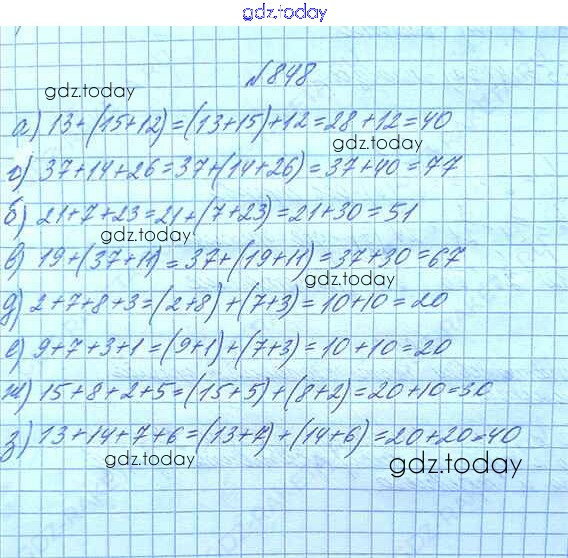 gdz.today
№848
gdz.today
а) 13+(15+12)=(13+15)+12=28+12=40
gdz.today
г) 37+14+26=37+(14+26)=37+40=77
б) 21+7+23=21+(7+23)=21+30=51
gdz.today
в) 19+(37+11)=37+(19+11)=37+30=67
gdz.today
д) 2+7+8+3=(2+8)+(7+3)=10+10=20
е) 9+7+3+1=(9+1)+(7+3)=10+10=20
ж) 15+8+2+5=(15+5)+(8+2)=20+10=30
з) 13+14+7+6=(13+7)+(14+6)=20+20=40
gdz.today
gdz.today